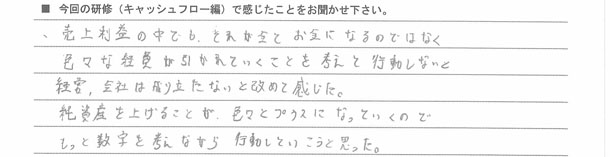 ■ 今回の研修（キャッシュフロー編）で感じたことをお聞かせ下さい。
、売上利益の中でも、それが全てお金になるのではなく
色々な経費が引かれていくことを考えて行動しないと
経営、会社は成り立たないと改めて感じた。
純資産を上げることが、色々とプラスになっていくので
もっと数字を考えながら行動していこうと思った。